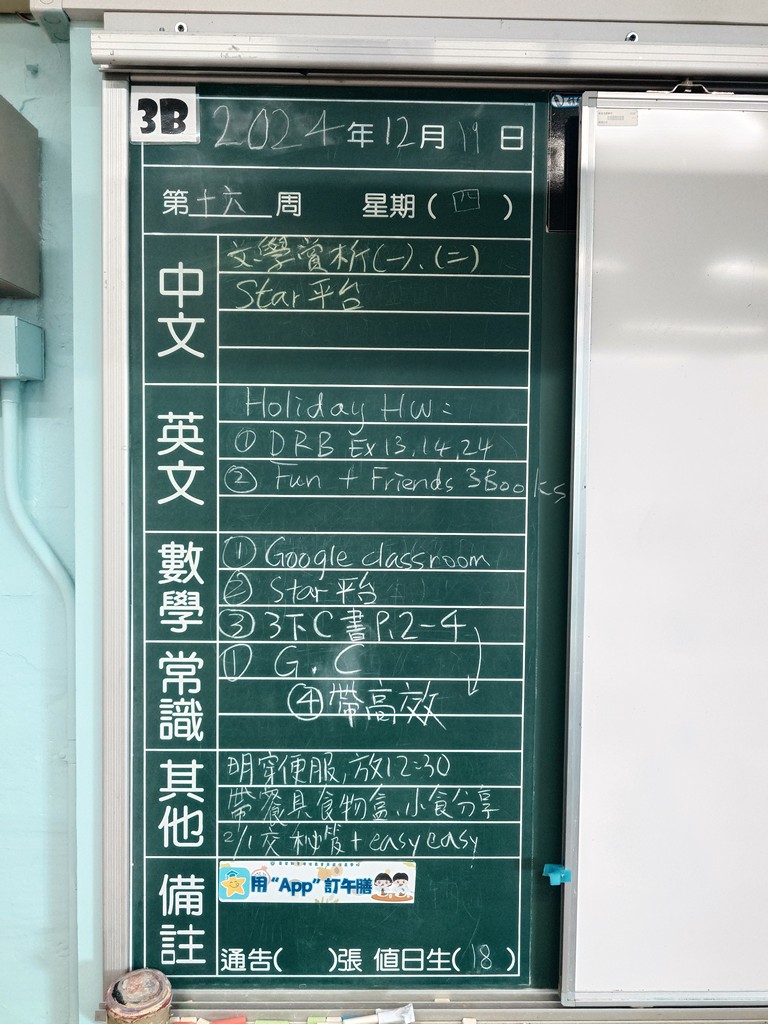 3B 2024年12月19日
第十六周 星期(四)
中文
文學賞析(一)、(二)
Star平台
英文
Holiday HW:
① DRB Ex13,14,24
② Fun + Friends 3Books
數學
① Google classroom
② Star平台
③ 3下C書P.2-4
常識
① G.C
④帶高效
其他
明穿便服,放12:30
帶餐具食物盒、小食分享
2/1交 + easy easy
備註
用“App”訂午膳
通告( )張 值日生(18)